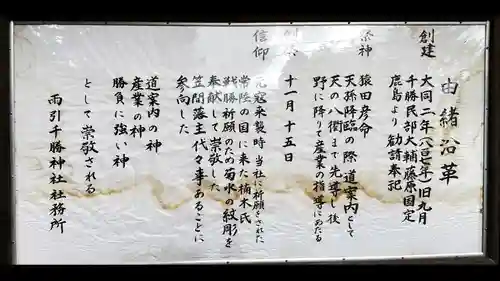 由緒沿革
創建 大同二年(八〇七年)旧九月
千勝民部大輔藤原国定
鹿島より勧請奉祀
祭神 猿田彦命
天孫降臨の際 道案内として
天の八衢まで先導し後
野に降りて産業の指導にあたる
十一月十五日
信仰 元寇来襲時当社に祈願された
常陸の国に来た楠木氏
戦勝祈願のため菊水の紋彫を
奉献して崇敬した
笠間落主代々事あることに
参向した
道案内の神
産業の神
勝負に強い神
として崇敬される
雨引千勝神社社務所